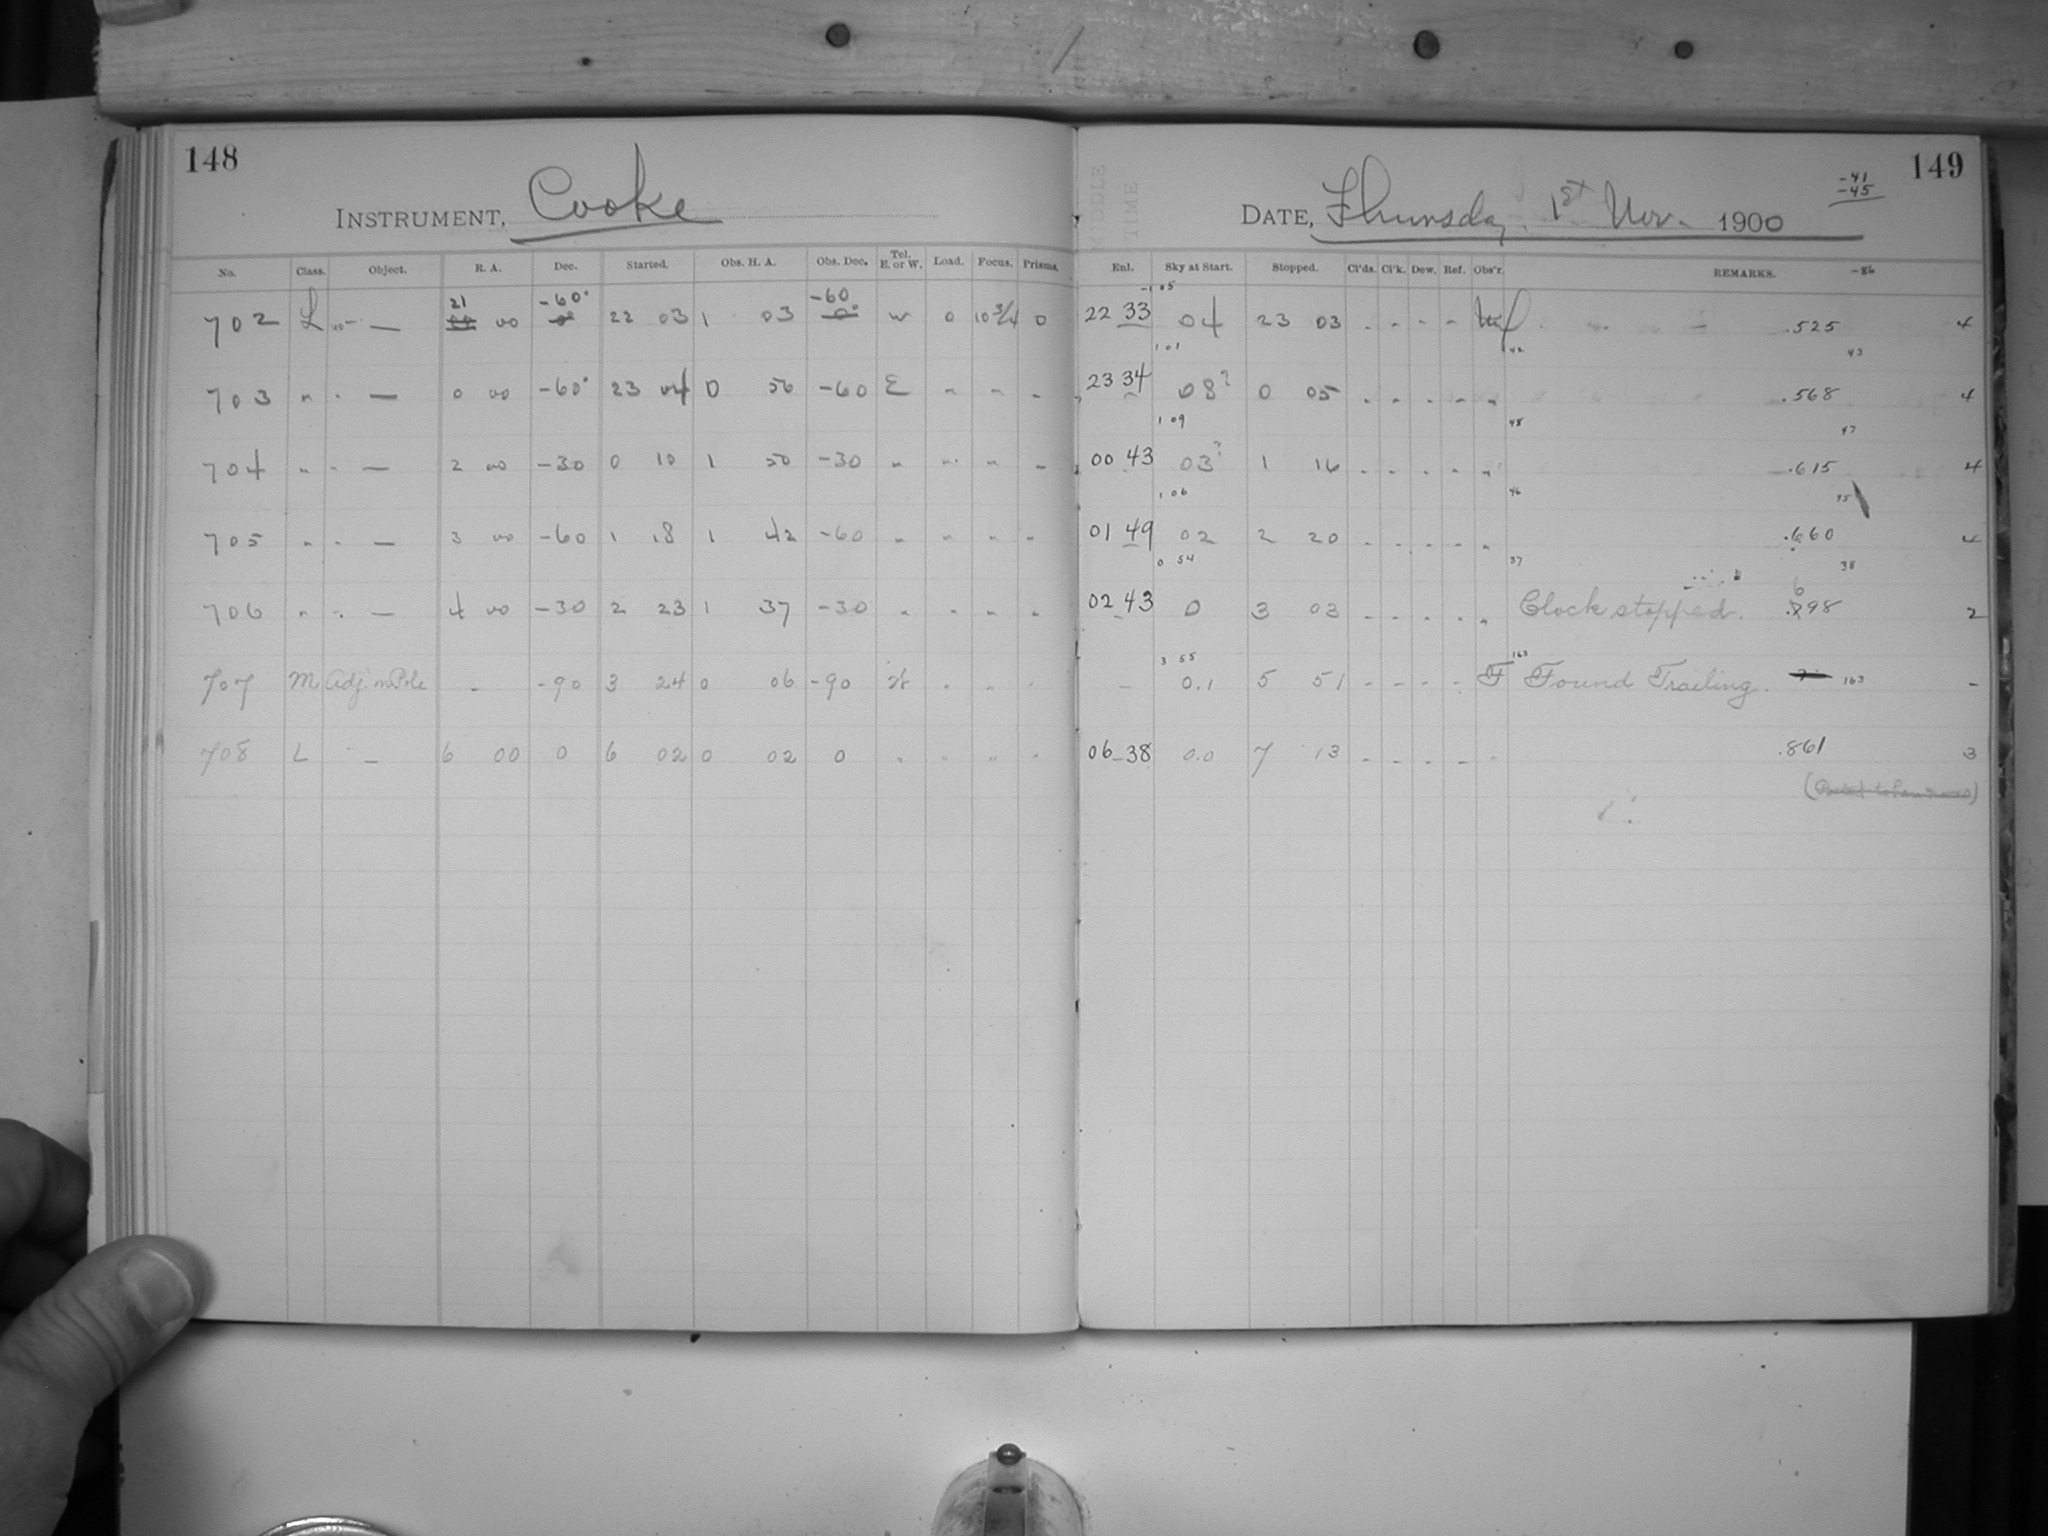 148
INSTRUMENT, Cooke
No. Class. Object. R. A. Dec. Started. Obs. H. A. Obs. Dec. Tel. E. or W. Load. Focus. Prisms.
21 -60° -60
702 L — 00 22 03 1 03 w 0 10 3/4 0
703 " - — 0 00 -60° 23 04 0 56 -60 E " " "
704 " - — 2 00 -30 0 10 1 50 -30 " " " "
705 " - — 3 00 -60 1 18 1 42 -60 " " " "
706 " - — 4 00 -30 2 23 1 37 -30 " " " "
707 M Adj. on Pole - -90 3 24 0 06 -90 " " "
708 L — 6 00 0 6 02 0 02 0 " " " "
149
MIDDLE TIME
-41
-45
DATE, Thursday 1st Nov. 1900
Enl. Sky at Start. Stopped. Cl'ds. Cl'k. Dew. Ref. Obs'r. REMARKS. -86
1 05
22 33 04 23 03 - - - - .525 4
1 01 42 43
23 34 08? 0 05 - - - - " .568 4
1 09 48 47
00 43 03? 1 16 - - - - " .615 4
1 06 46 45
01 49 02 2 20 - - - - " .660 4
0 54 37 38
02 43 0 3 03 - - - - " Clock stopped. .698 2
3 55 163
— 0.1 5 51 - - - - F Found Trailing. 163 -
06 38 0.0 7 13 - - - - " .861 3